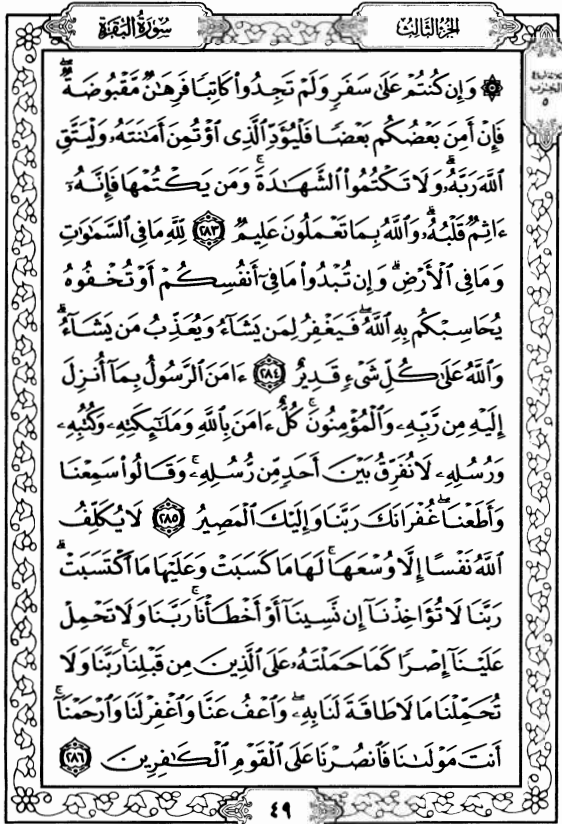 سُورَةُ البَقَرَةِ
الجُزْءُ الثَّالِثُ
۞ وَإِن كُنتُمْ عَلَىٰ سَفَرٍ وَلَمْ تَجِدُوا۟ كَاتِبًا فَرِهَـٰنٌ مَّقْبُوضَةٌ ۖ
فَإِنْ أَمِنَ بَعْضُكُم بَعْضًا فَلْيُؤَدِّ ٱلَّذِى ٱؤْتُمِنَ أَمَـٰنَتَهُۥ وَلْيَتَّقِ
ٱللَّهَ رَبَّهُۥ ۗ وَلَا تَكْتُمُوا۟ ٱلشَّهَـٰدَةَ ۚ وَمَن يَكْتُمْهَا فَإِنَّهُۥٓ
ءَاثِمٌ قَلْبُهُۥ ۗ وَٱللَّهُ بِمَا تَعْمَلُونَ عَلِيمٌ ٢٨٣ لِّلَّهِ مَا فِى ٱلسَّمَـٰوَٰتِ
وَمَا فِى ٱلْأَرْضِ ۗ وَإِن تُبْدُوا۟ مَا فِىٓ أَنفُسِكُمْ أَوْ تُخْفُوهُ
يُحَاسِبْكُم بِهِ ٱللَّهُ ۖ فَيَغْفِرُ لِمَن يَشَآءُ وَيُعَذِّبُ مَن يَشَآءُ ۗ
وَٱللَّهُ عَلَىٰ كُلِّ شَىْءٍ قَدِيرٌ ٢٨٤ ءَامَنَ ٱلرَّسُولُ بِمَآ أُنزِلَ
إِلَيْهِ مِن رَّبِّهِۦ وَٱلْمُؤْمِنُونَ ۚ كُلٌّ ءَامَنَ بِٱللَّهِ وَمَلَـٰٓئِكَتِهِۦ وَكُتُبِهِۦ
وَرُسُلِهِۦ لَا نُفَرِّقُ بَيْنَ أَحَدٍ مِّن رُّسُلِهِۦ ۚ وَقَالُوا۟ سَمِعْنَا
وَأَطَعْنَا ۖ غُفْرَانَكَ رَبَّنَا وَإِلَيْكَ ٱلْمَصِيرُ ٢٨٥ لَا يُكَلِّفُ
ٱللَّهُ نَفْسًا إِلَّا وُسْعَهَا ۚ لَهَا مَا كَسَبَتْ وَعَلَيْهَا مَا ٱكْتَسَبَتْ ۗ
رَبَّنَا لَا تُؤَاخِذْنَآ إِن نَّسِينَآ أَوْ أَخْطَأْنَا ۚ رَبَّنَا وَلَا تَحْمِلْ
عَلَيْنَآ إِصْرًا كَمَا حَمَلْتَهُۥ عَلَى ٱلَّذِينَ مِن قَبْلِنَا ۚ رَبَّنَا وَلَا
تُحَمِّلْنَا مَا لَا طَاقَةَ لَنَا بِهِۦ ۖ وَٱعْفُ عَنَّا وَٱغْفِرْ لَنَا وَٱرْحَمْنَآ ۚ
أَنتَ مَوْلَىٰنَا فَٱنصُرْنَا عَلَى ٱلْقَوْمِ ٱلْكَـٰفِرِينَ ٢٨٦
٤٩
الحزب
٥